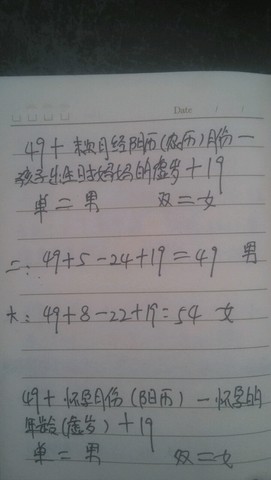 Date / /
49+末次月经阴历(农历)月份一
孩子出生时妈妈的虚岁+19
单=男 双=女
二:49+5-24+19=49 男
大:49+8-22+19=54 女
49+怀孕月份(阳历)一怀孕的
年龄(虚岁)+19
单=男 双=女